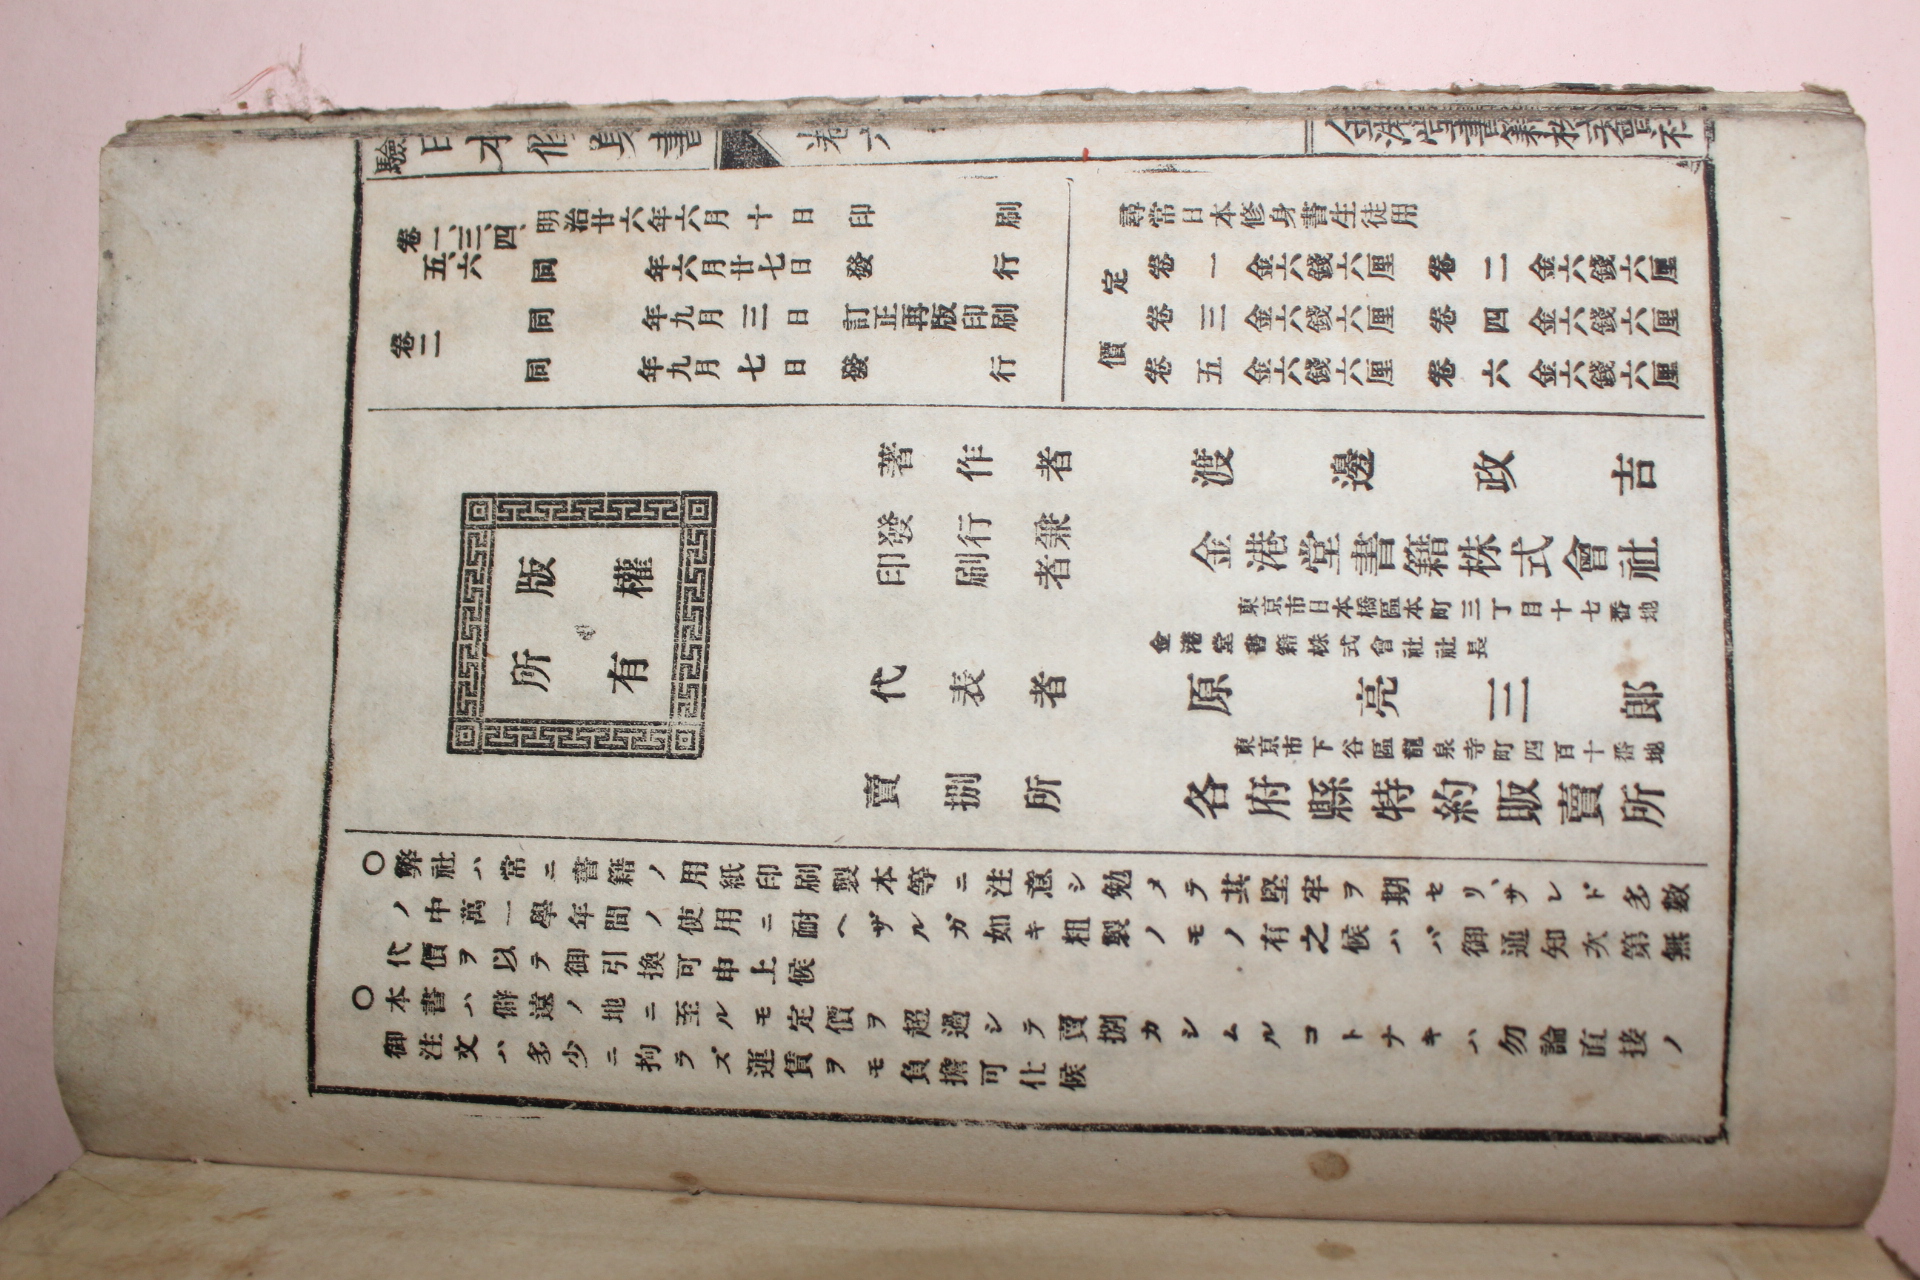 驗日本修身書 卷六 金港堂書籍株式會社
卷一、三、四、五、六 明治廿六年六月十日印刷
同年六月廿七日發行
卷二 同年九月三日訂正再版印刷
同年九月七日發行
尋常日本修身書生徒用
定價
卷一金六錢六厘 卷二金六錢六厘
卷三金六錢六厘 卷四金六錢六厘
卷五金六錢六厘 卷六金六錢六厘
版權
所有
著作者 渡邊政吉
發行兼
印刷者 金港堂書籍株式會社
東京市日本橋區本町三丁目十七番地
金港堂書籍株式會社社長
代表者 原亮三郎
東京市下谷區龍泉寺町四百十番地
賣捌所 各府縣特約販賣所
〇弊社ハ常ニ書籍ノ用紙印刷製本等ニ注意シ勉メテ其堅牢ヲ期セリ、サレド多數
ノ中萬一學年間ノ使用ニ耐ヘザルガ如キ粗製ノモノ有之候ハバ御通知次第無
代價ヲ以テ御引換可申上候
〇本書ハ僻遠ノ地ニ至ルモ定價ヲ超過シテ賣捌カシムルコトナキハ勿論直接ノ
御注文ハ多少ニ拘ラズ運賃ヲモ負擔可仕候